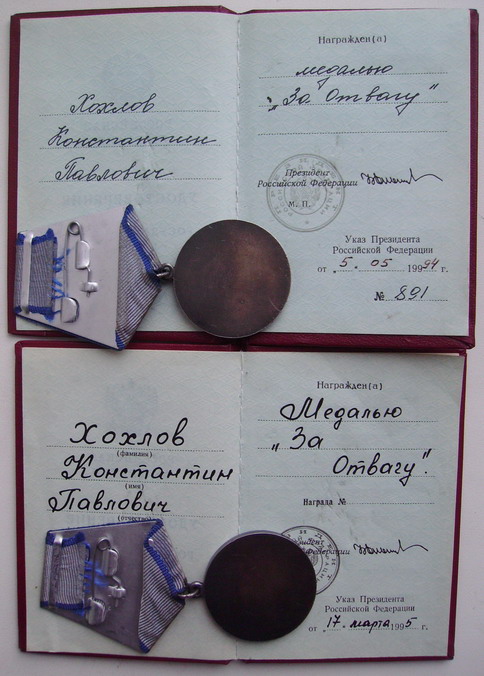 Хохлов
Константин
Павлович
Награжден(а)
медалью
„За Отвагу"
Президент
Российской Федерации
М. П.
Указ Президента
Российской Федерации
от 5. 05 1994 г.
№ 891
Хохлов
(фамилия)
Константин
(имя)
Павлович
(отчество)
Награжден(а)
Медалью
„За
Отвагу".
Награда №
Указ Президента
Российской Федерации
от 17. марта 1995 г.